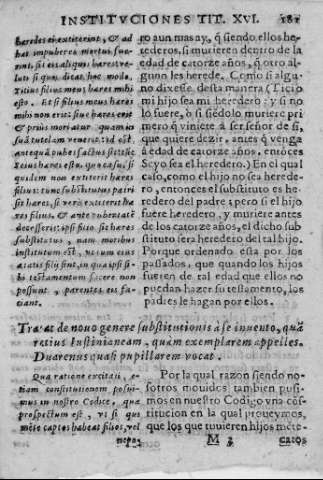 INSTITVCIONES TIT. XVI. 181
heredes ei extiterint, & ad
huc impuberes mortui fue-
rint, sit eis aliquis hæres: ve-
luti si quis dicat hoc modo,
Titius filius meus hæres mihi
esto. Et si filius meus hæres
mihi non erit: siue hæres erit
& prius moriatur quam in
suã tutelam venerit: id est,
antequã pubes factus sit: tũc
Seius hæres esto. quo casu, si
quidem non extiterit hæres
filius: tunc substitutus patri
sit hæres, si verò extiterit hæ
res filius, & ante pubertatẽ
decesserit: ipsi filio sit hæres
substitutus, nam moribus
institutum est, vt cum eius
ætatis filij sint, in qua ipsi si-
bi testamentum facere non
possunt, parentes eis fa-
ciant.
ro aun mas ay, q̃ siendo ellos he-
rederos, si murieren dentro de la
edad de catorze años, q̃ otro al-
guno les herede. Como si algu-
no dixesse desta manera (Ticio
mi hijo sea mi heredero: y si no
lo fuere, o si siẽdolo muriere pri-
mero q̃ viniere à ser señor de si,
que quiere dezir, antes q̃ venga
à edad de catorze años. entõces
Seyo sea el heredero.) En el qual
caso, como el hijo no sea herede-
ro, entonces el substituto es he-
redero del padre: pero si el hijo
fuere heredero, y muriere antes
de los catorze años, el dicho sub
stituto sera heredero del tal hijo.
Porque ordenado esta por los
passados, que quando los hijos
fueren de tal edad que ellos no
puedan hazer su testamento, los
padres le hagan por ellos.
Tratat de nouo genere substitutionis à se inuento, quã
ratius Iustinianeam, quàm exemplarem appelles.
Duarenus quasi pupillarem vocat.
Qua ratione excitati, e-
tiam constitutionem posui-
mus in nostro Codice, qua
prospectum est, vt si qui
mẽte captos habeat filios, vel
nepo-
Por la qual razon siendo no-
sotros mouidos tambien pusi-
mos en nuestro Codigo vna cõs-
titucion en la qual proueymos,
que los que tuuieren hijos mẽte-
M 3 catos